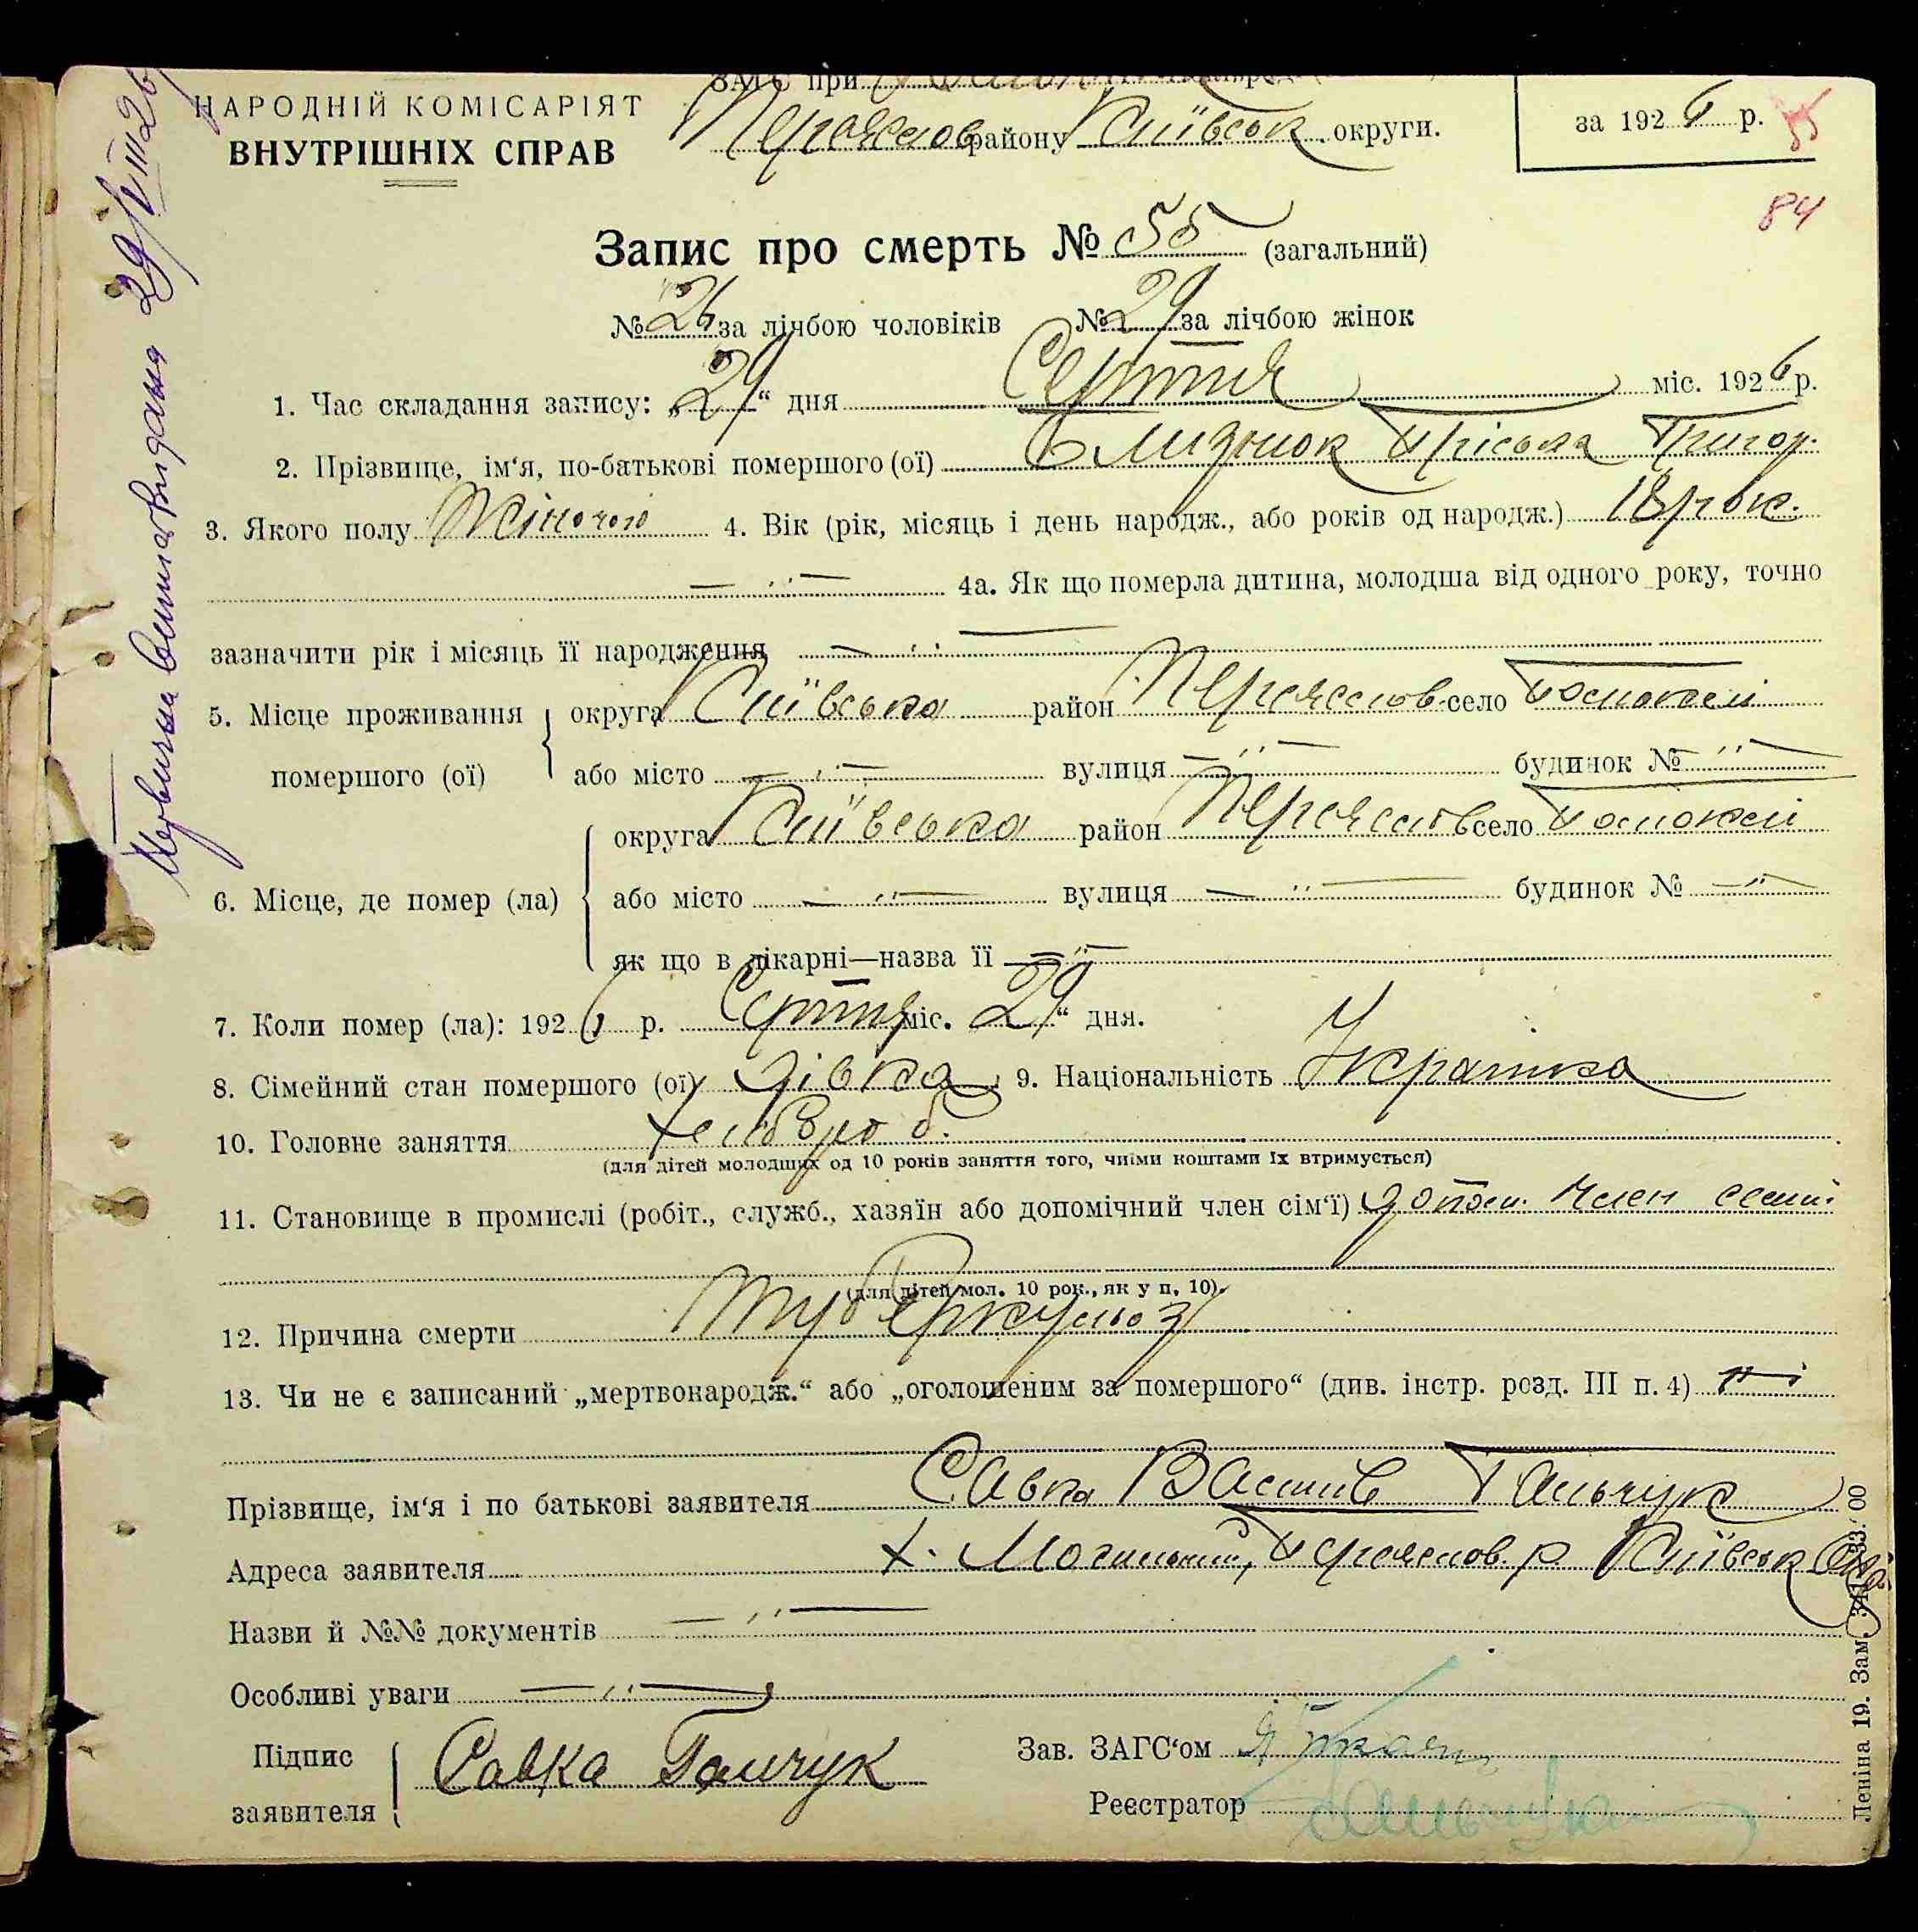 НАРОДНІЙ КОМІСАРІЯТ
ВНУТРІШНІХ СПРАВ
ЗАГС при
Переяслов району Київськ. округи.
за 1926 р.
85
84
Запис про смерть № 55 (загальний)
№ 26 за лічбою чоловіків № 29 за лічбою жінок
1. Час складання запису: „29“ дня Серпня міс. 1926 р.
2. Прізвище, ім‘я, по-батькові помершого (ої) Пріська Григор.
3. Якого полу Жіночого 4. Вік (рік, місяць і день народж., або років од народж.) 18 рок.
4а. Як що померла дитина, молодша від одного року, точно
зазначити рік і місяць її народження
5. Місце проживання помершого (ої) округа Київська район Переяслов. село
або місто вулиця будинок №
6. Місце, де помер (ла) округа Київська район Переяслов село
або місто вулиця будинок №
як що в лікарні—назва її
7. Коли помер (ла): 1926 р. Серпня міс. 29“ дня.
8. Сімейний стан помершого (ої) дівка 9. Національність Українка
10. Головне заняття хлібороб.
(для дітей молодших од 10 років заняття того, чиїми коштами їх втримується)
11. Становище в промислі (робіт., служб., хазяїн або допомічний член сім‘ї) допом. член семі
(для дітей мол. 10 рок., як у п. 10).
12. Причина смерти туберкульоз
13. Чи не є записаний „мертвонародж.“ або „оголошеним за помершого“ (див. інстр. розд. III п. 4) ні
Прізвище, ім‘я і по батькові заявителя Савка Василів Гальчук
Адреса заявителя х. Могильний, Переяслов. р. Київськ
Назви й №№ документів
Особливі уваги
Підпис заявителя Савка Галчук
Зав. ЗАГС‘ом
Реєстратор Гальчук
Леніна 19. Зам.
Первична виписка видана 29/VIII 26